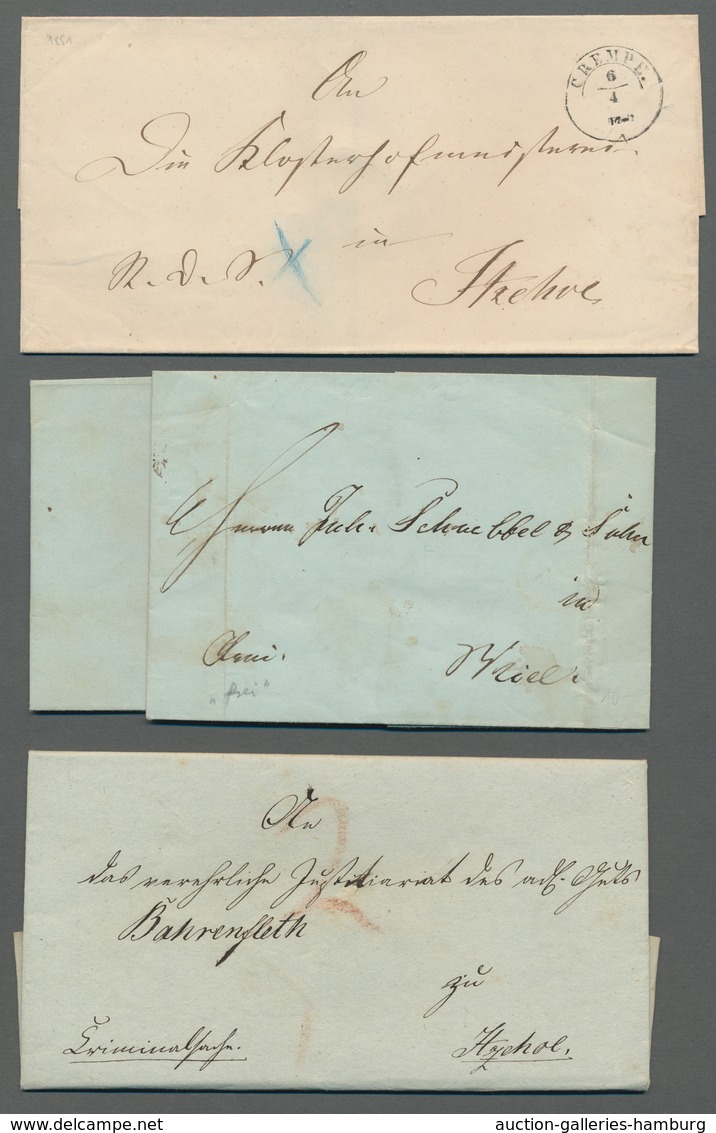 1851
CREMPE.
6
4
An
Die Klosterhofmeisterei
in
R. d. S.
Itzehoe
Herren Joh. Schwebbel & Sohn
in
frei.
Kiel
"frei"
10
An
das verehrliche Justitiariat des adl. Guts
Bahrenfleth
zu
Criminalsache.
Itzehoe.
auction-galleries-hamburg.com